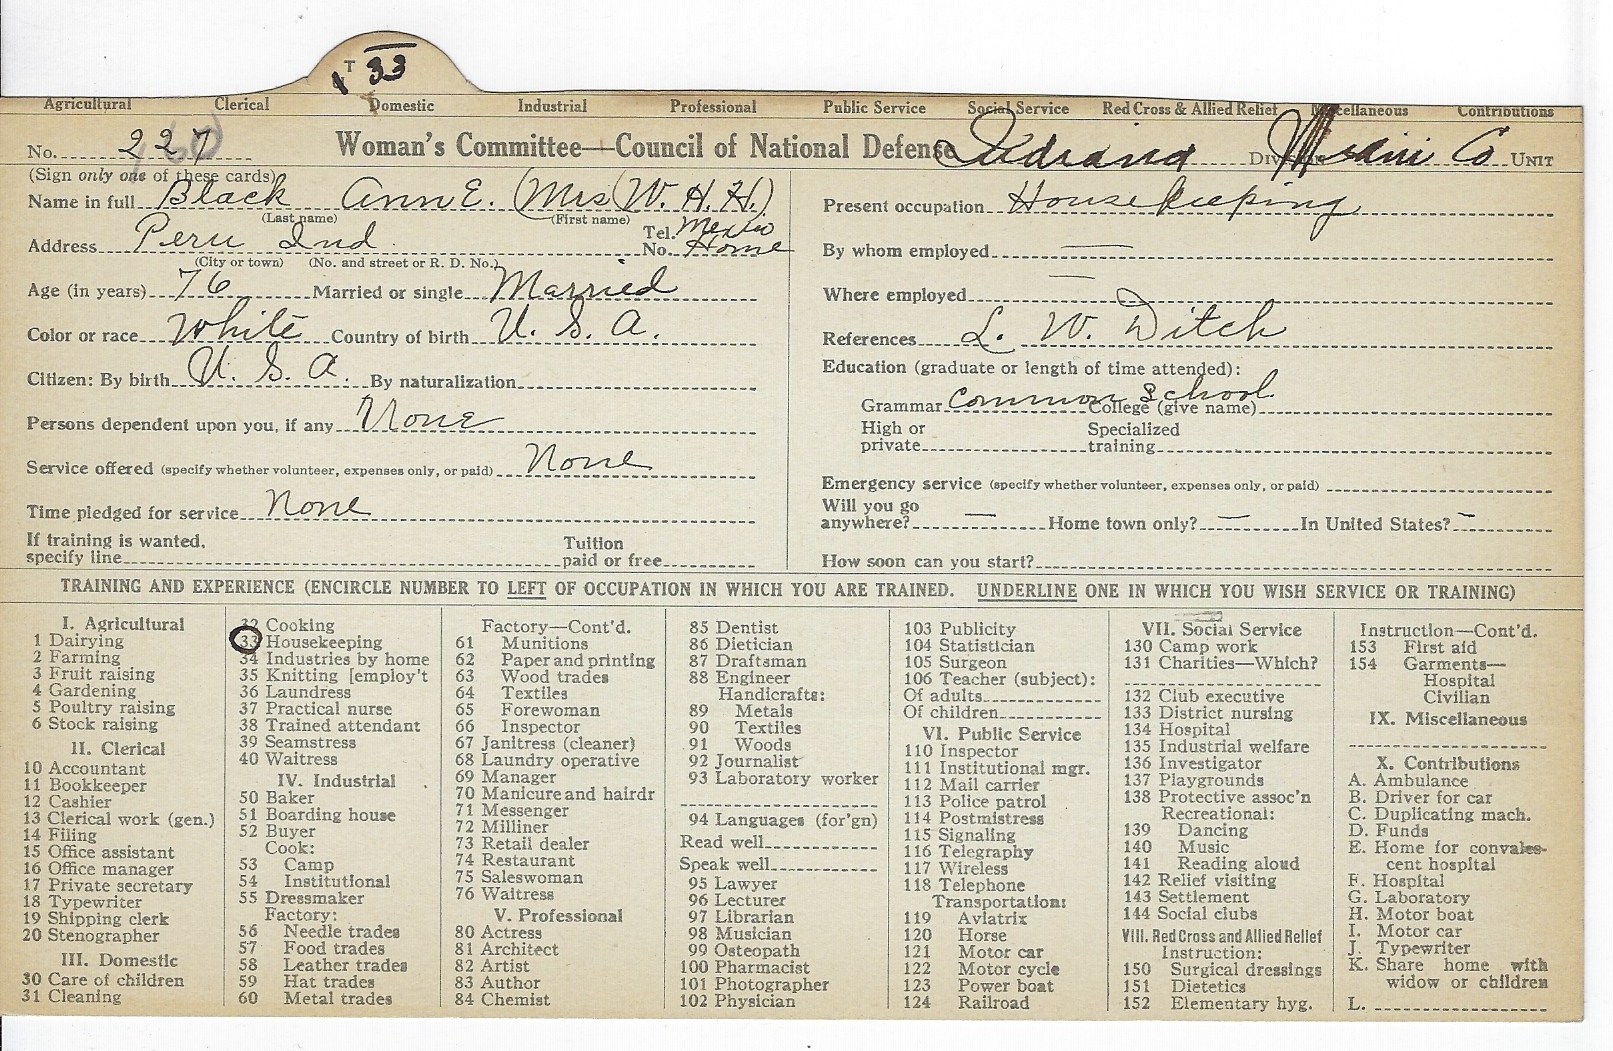 T 33
Agricultural Clerical Domestic Industrial Professional Public Service Social Service Red Cross & Allied Relief Miscellaneous Contributions
No. 227 Woman's Committee—Council of National Defense Indiana Division Miami Co UNIT
(Sign only one of these cards)
Name in full Black Ann E. (Mrs (W. H. H.)
(Last name) (First name)
Address Peru Ind. Tel. No. Mexico Home
(City or town) (No. and street or R. D. No.)
Age (in years) 76 Married or single Married
Color or race White Country of birth U. S. A.
Citizen: By birth U. S. A. By naturalization
Persons dependent upon you, if any None
Service offered (specify whether volunteer, expenses only, or paid) None
Time pledged for service None
If training is wanted,
specify line Tuition paid or free
Present occupation Housekeeping
By whom employed —
Where employed —
References L. W. Ditch
Education (graduate or length of time attended):
Grammar Common School College (give name)
High or private Specialized training
Emergency service (specify whether volunteer, expenses only, or paid)
Will you go
anywhere? — Home town only? — In United States? —
How soon can you start?
TRAINING AND EXPERIENCE (ENCIRCLE NUMBER TO LEFT OF OCCUPATION IN WHICH YOU ARE TRAINED. UNDERLINE ONE IN WHICH YOU WISH SERVICE OR TRAINING)
I. Agricultural
1 Dairying
2 Farming
3 Fruit raising
4 Gardening
5 Poultry raising
6 Stock raising
II. Clerical
10 Accountant
11 Bookkeeper
12 Cashier
13 Clerical work (gen.)
14 Filing
15 Office assistant
16 Office manager
17 Private secretary
18 Typewriter
19 Shipping clerk
20 Stenographer
III. Domestic
30 Care of children
31 Cleaning
32 Cooking
33 Housekeeping
34 Industries by home
35 Knitting [employ't
36 Laundress
37 Practical nurse
38 Trained attendant
39 Seamstress
40 Waitress
IV. Industrial
50 Baker
51 Boarding house
52 Buyer
Cook:
53 Camp
54 Institutional
55 Dressmaker
Factory:
56 Needle trades
57 Food trades
58 Leather trades
59 Hat trades
60 Metal trades
Factory—Cont'd.
61 Munitions
62 Paper and printing
63 Wood trades
64 Textiles
65 Forewoman
66 Inspector
67 Janitress (cleaner)
68 Laundry operative
69 Manager
70 Manicure and hairdr
71 Messenger
72 Milliner
73 Retail dealer
74 Restaurant
75 Saleswoman
76 Waitress
V. Professional
80 Actress
81 Architect
82 Artist
83 Author
84 Chemist
85 Dentist
86 Dietician
87 Draftsman
88 Engineer
Handicrafts:
89 Metals
90 Textiles
91 Woods
92 Journalist
93 Laboratory worker
94 Languages (for'gn)
Read well
Speak well
95 Lawyer
96 Lecturer
97 Librarian
98 Musician
99 Osteopath
100 Pharmacist
101 Photographer
102 Physician
103 Publicity
104 Statistician
105 Surgeon
106 Teacher (subject):
Of adults
Of children
VI. Public Service
110 Inspector
111 Institutional mgr.
112 Mail carrier
113 Police patrol
114 Postmistress
115 Signaling
116 Telegraphy
117 Wireless
118 Telephone
Transportation:
119 Aviatrix
120 Horse
121 Motor car
122 Motor cycle
123 Power boat
124 Railroad
VII. Social Service
130 Camp work
131 Charities—Which?
132 Club executive
133 District nursing
134 Hospital
135 Industrial welfare
136 Investigator
137 Playgrounds
138 Protective assoc'n
Recreational:
139 Dancing
140 Music
141 Reading aloud
142 Relief visiting
143 Settlement
144 Social clubs
VIII. Red Cross and Allied Relief
Instruction:
150 Surgical dressings
151 Dietetics
152 Elementary hyg.
Instruction—Cont'd.
153 First aid
154 Garments—
Hospital
Civilian
IX. Miscellaneous
X. Contributions
A. Ambulance
B. Driver for car
C. Duplicating mach.
D. Funds
E. Home for convales-
cent hospital
F. Hospital
G. Laboratory
H. Motor boat
I. Motor car
J. Typewriter
K. Share home with
widow or children
L.